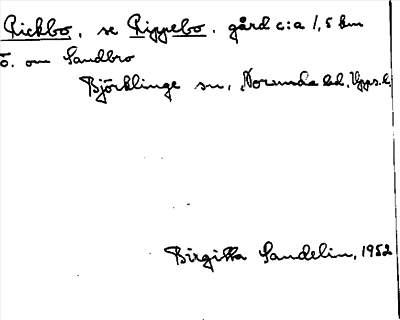 Rickbo, se Rippebo. gård c:a 1,5 km
ö. om Sandbro
Björklinge sn, Norunda hd, Upps. l.
Birgitta Sandelin, 1952